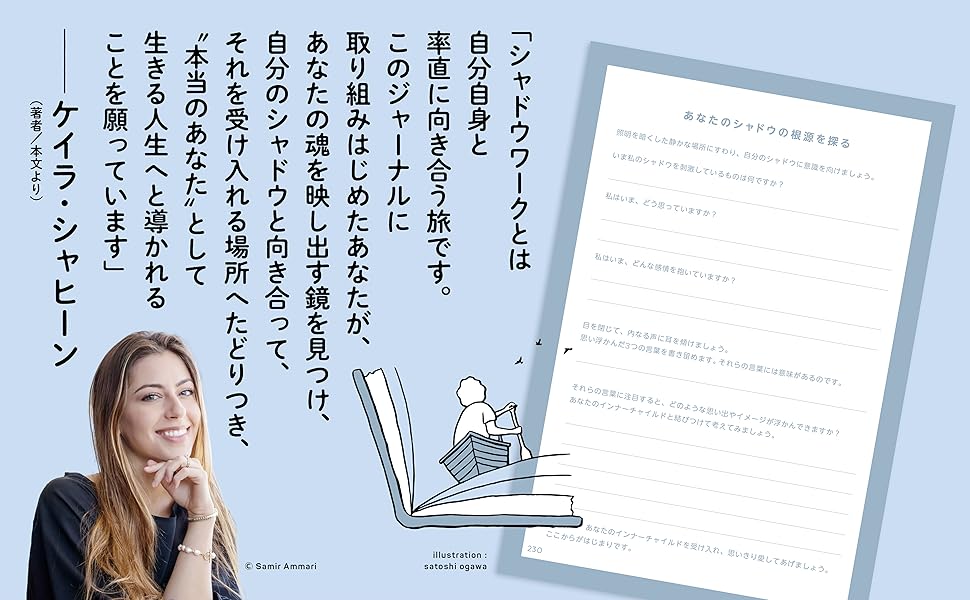 「シャドウワークとは
自分自身と
率直に向き合う旅です。
このジャーナルに
取り組みはじめたあなたが、
あなたの魂を映し出す鏡を見つけ、
自分のシャドウと向き合って、
それを受け入れる場所へたどりつき、
“本当のあなた”として
生きる人生へと導かれる
ことを願っています」
——ケイラ・シャヒーン
（著者／本文より）
あなたのシャドウの根源を探る
照明を暗くした静かな場所にすわり、自分のシャドウに意識を向けましょう。
いま私のシャドウを刺激しているものは何ですか？
私はいま、どう思っていますか？
私はいま、どんな感情を抱いていますか？
目を閉じて、内なる声に耳を傾けましょう。
思い浮かんだ3つの言葉を書き留めます。それらの言葉には意味があるのです。
それらの言葉に注目すると、どのような思い出やイメージが浮かんできますか？
あなたのインナーチャイルドと結びつけて考えてみましょう、
あなたのインナーチャイルドを受け入れ、思いきり愛してあげましょう。
ここからがはじまりです。
230
illustration :
satoshi ogawa
© Samir Ammari